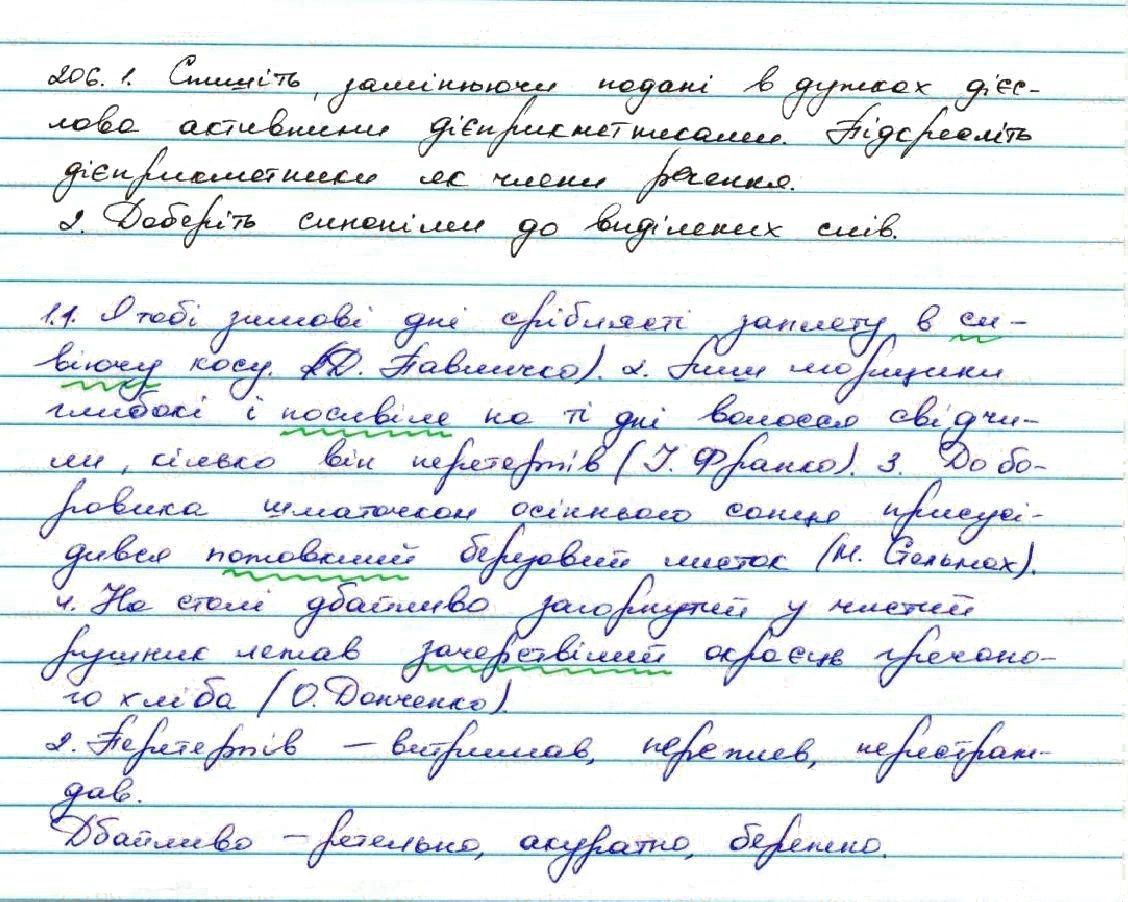 206. 1. Спишіть, замінюючи подані в дужках дієс-
лова активними дієприкметниками. Підкресліть
дієприкметники як члени речення.
2. Доберіть синоніми до виділених слів.
1.1. Я тобі зимові дні сріблясті заплету в си-
віючу косу. (Д. Павличко). 2. Лиш морщини
глибокі і посивіле на ті дні волосся свідчи-
ли, кілько він перетерпів (І. Франко). 3. До бо-
ровика шматочком осіннього сонця присусі-
дився пожовклий березовий листок (М. Стельмах).
4. На столі дбайливо загорнутий у чистий
рушник лежав зачерствілий окраєць гречано-
го хліба (О. Донченко).
2. Перетерпів – витримав, пережив, перестраж-
дав.
Дбайливо – ретельно, акуратно, бережно.